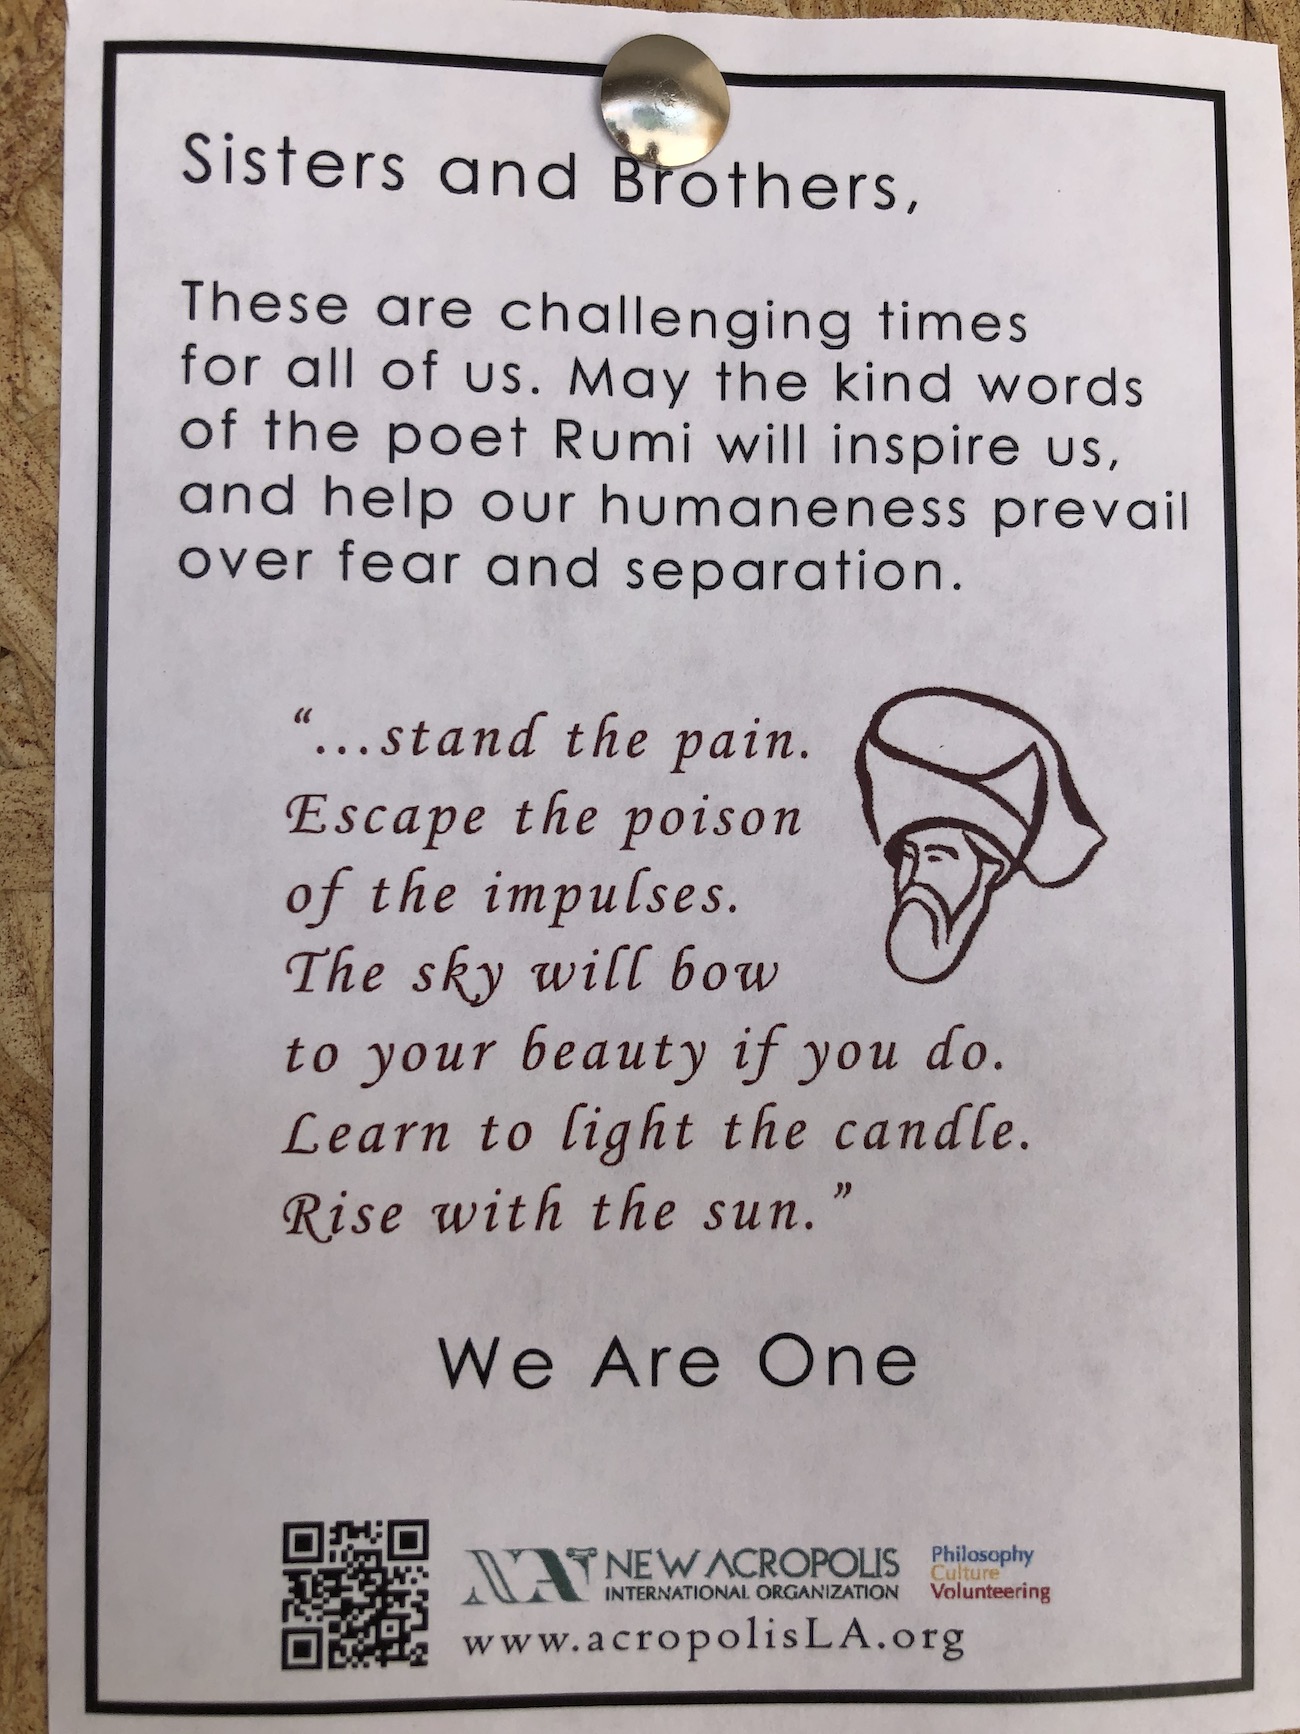 Sisters and Brothers,
These are challenging times
for all of us. May the kind words
of the poet Rumi will inspire us,
and help our humaneness prevail
over fear and separation.
“...stand the pain.
Escape the poison
of the impulses.
The sky will bow
to your beauty if you do.
Learn to light the candle.
Rise with the sun.”
We Are One
NA
NEW ACROPOLIS
INTERNATIONAL ORGANIZATION
Philosophy
Culture
Volunteering
www.acropolisLA.org